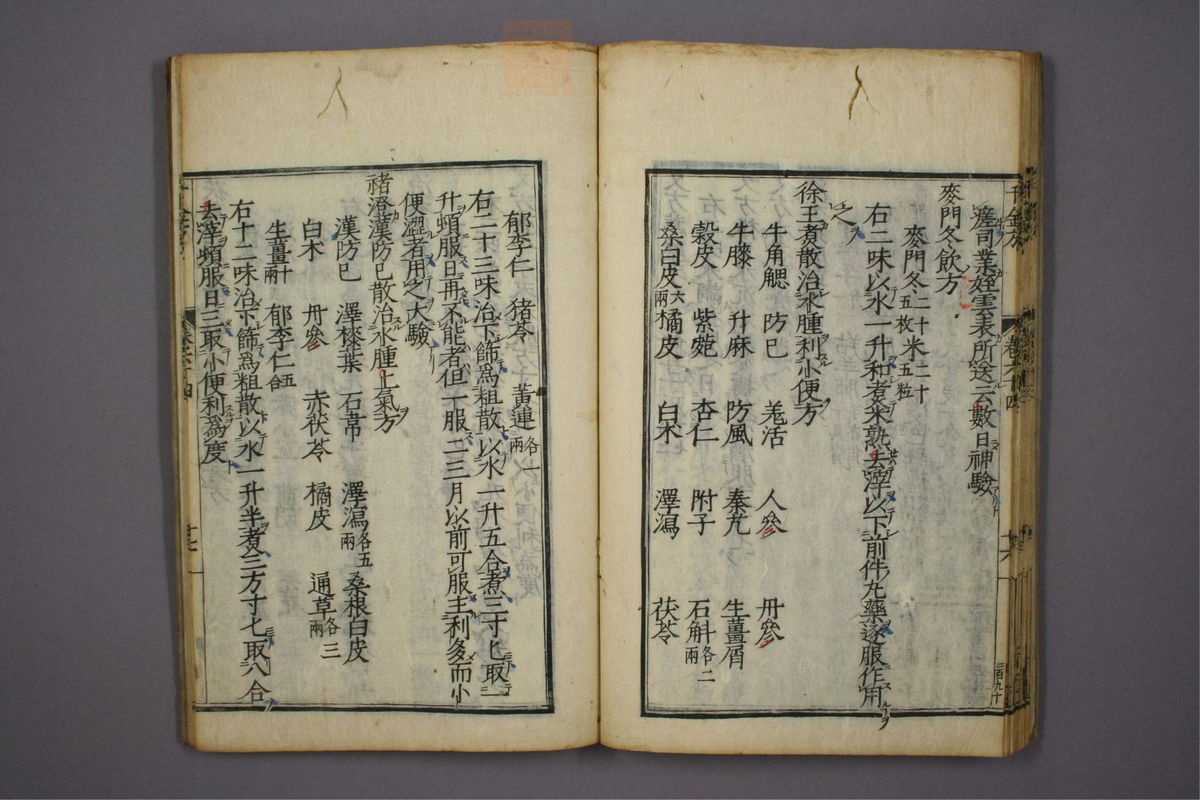 瘥司業姪雲表所送云數日神驗
麥門冬飲方
麥門冬二十五枚 米二十五粒
右二味以水一升和煮米熟去滓以下前件九藥逐服作用
之
徐王煮散治水腫利小便方
牛角䚡 防巳 羗活 人參 丹參
牛膝 升麻 防風 秦艽 生薑屑
穀皮 紫菀 杏仁 附子 石斛各二兩
桑白皮六兩 橘皮 白朮 澤瀉 茯苓
郁李仁 猪苓 黃連各一兩
右二十三味治下篩爲粗散以水一升五合煮三寸匕取一
升頓服日再不能者但一服二三月以前可服主利多而小
便澀者用之大驗
褚澄漢防巳散治水腫上氣方
漢防巳 澤漆葉 石韋 澤瀉各五兩 桑根白皮
白朮 丹參 赤茯苓 橘皮 通草各三兩
生薑十兩 郁李仁五合
右十二味治下篩爲粗散以水一升半煮三方寸匕取八合
去滓頓服日三取小便利爲度